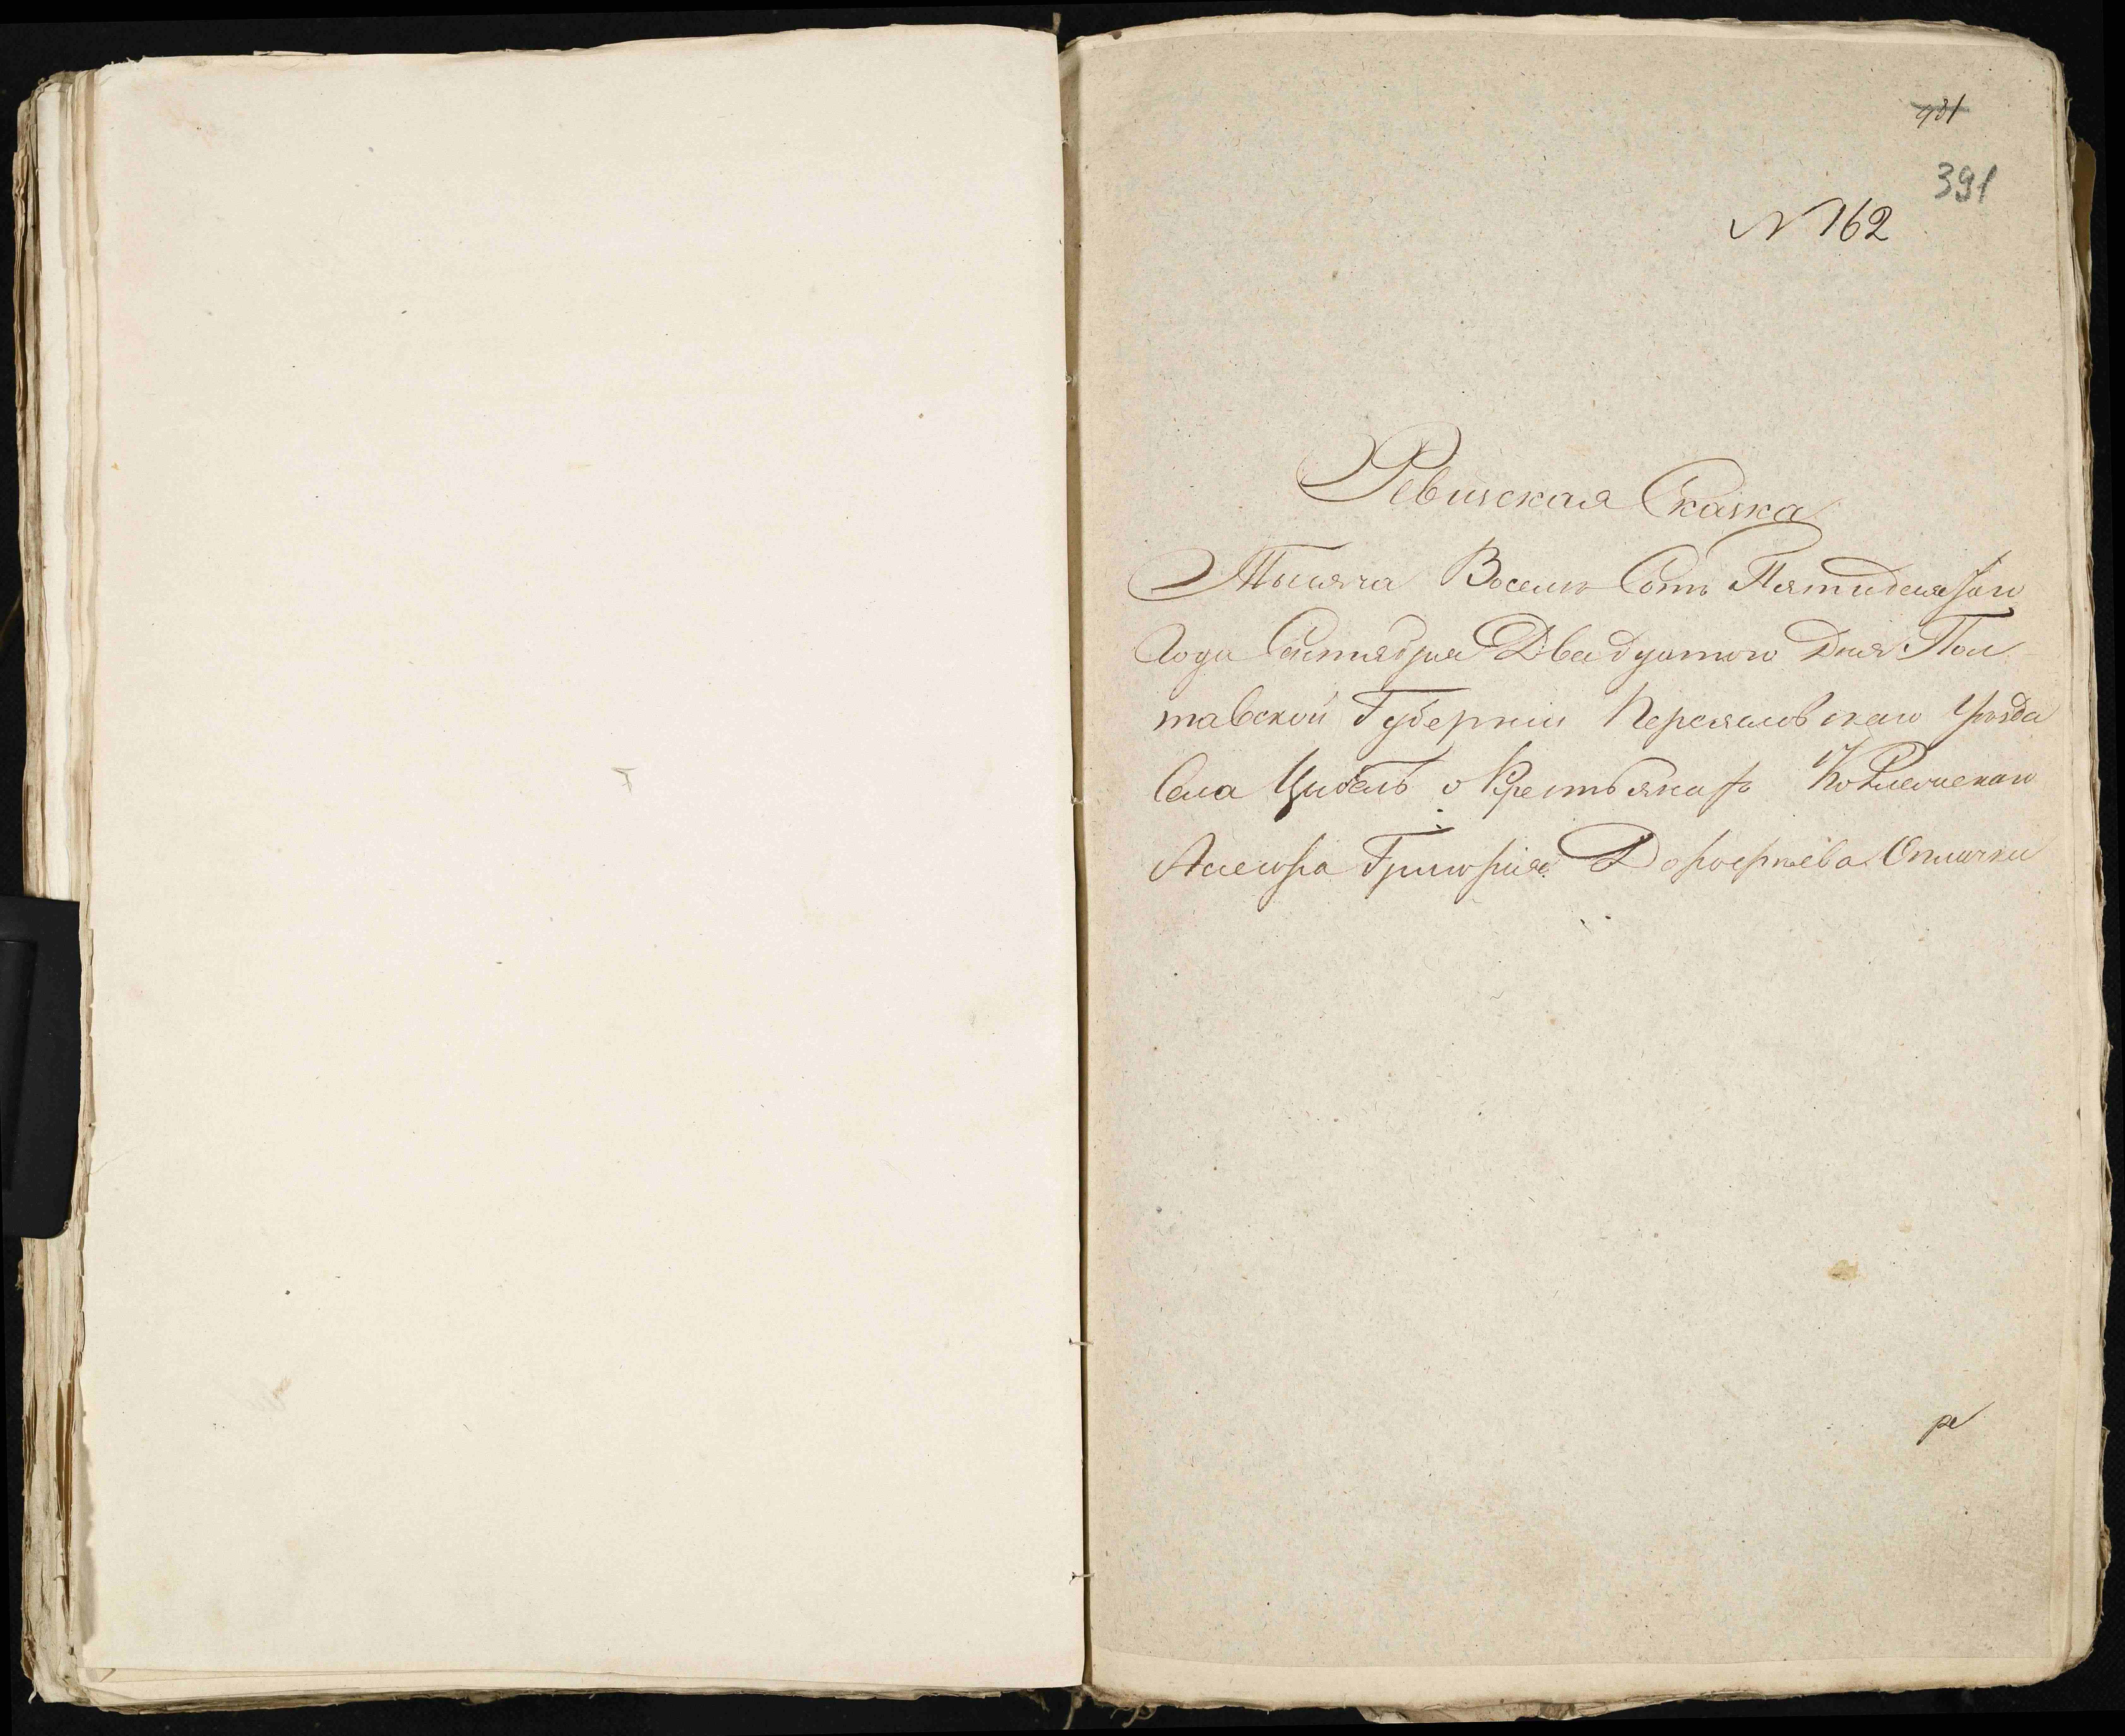 391
N 162
Ревизская Сказка
Тысяча Восемь Сотъ Пятидесятого
Года Сентября Двадцатого Дня Пол-
тавской Губерніи Переяславскаго Уѣзда
Села Цибель о Крестьянахъ Коллежскаго
Асесора Григорія Дорофѣева